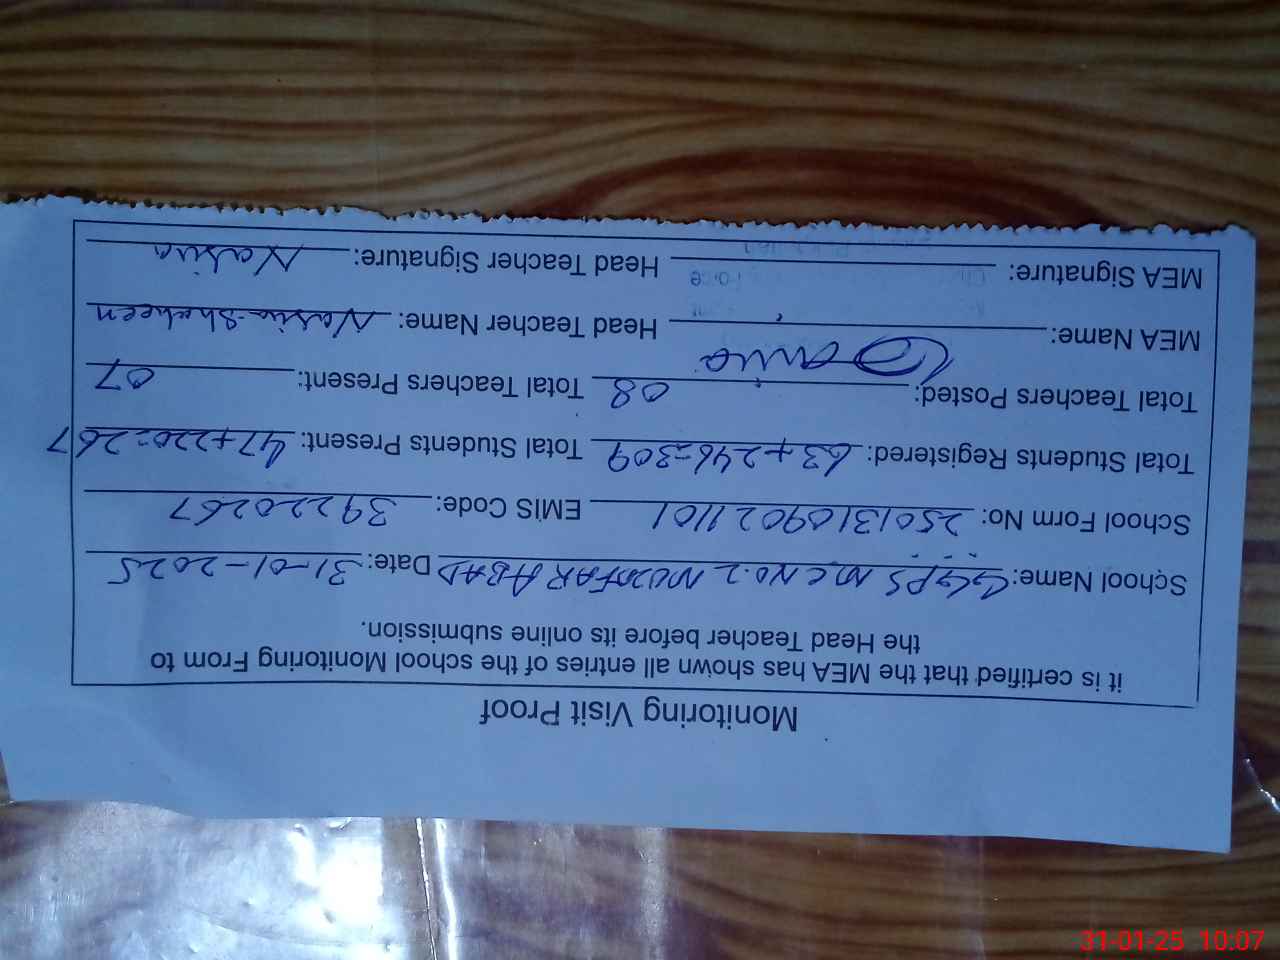 Monitoring Visit Proof
it is certified that the MEA has shown all entries of the school Monitoring From to
the Head Teacher before its online submission.
School Name: GGPS M.C NO.2 MUZAFFARABAD Date: 31-01-2025
School Form No: 25013109021101 EMIS Code: 39220267
Total Students Registered: 63+246=309 Total Students Present: 47+220=267
Total Teachers Posted: 08 Total Teachers Present: 07
MEA Name: Head Teacher Name: Nasira Shaheen
MEA Signature: Head Teacher Signature: Nasira
31-01-25 10:07